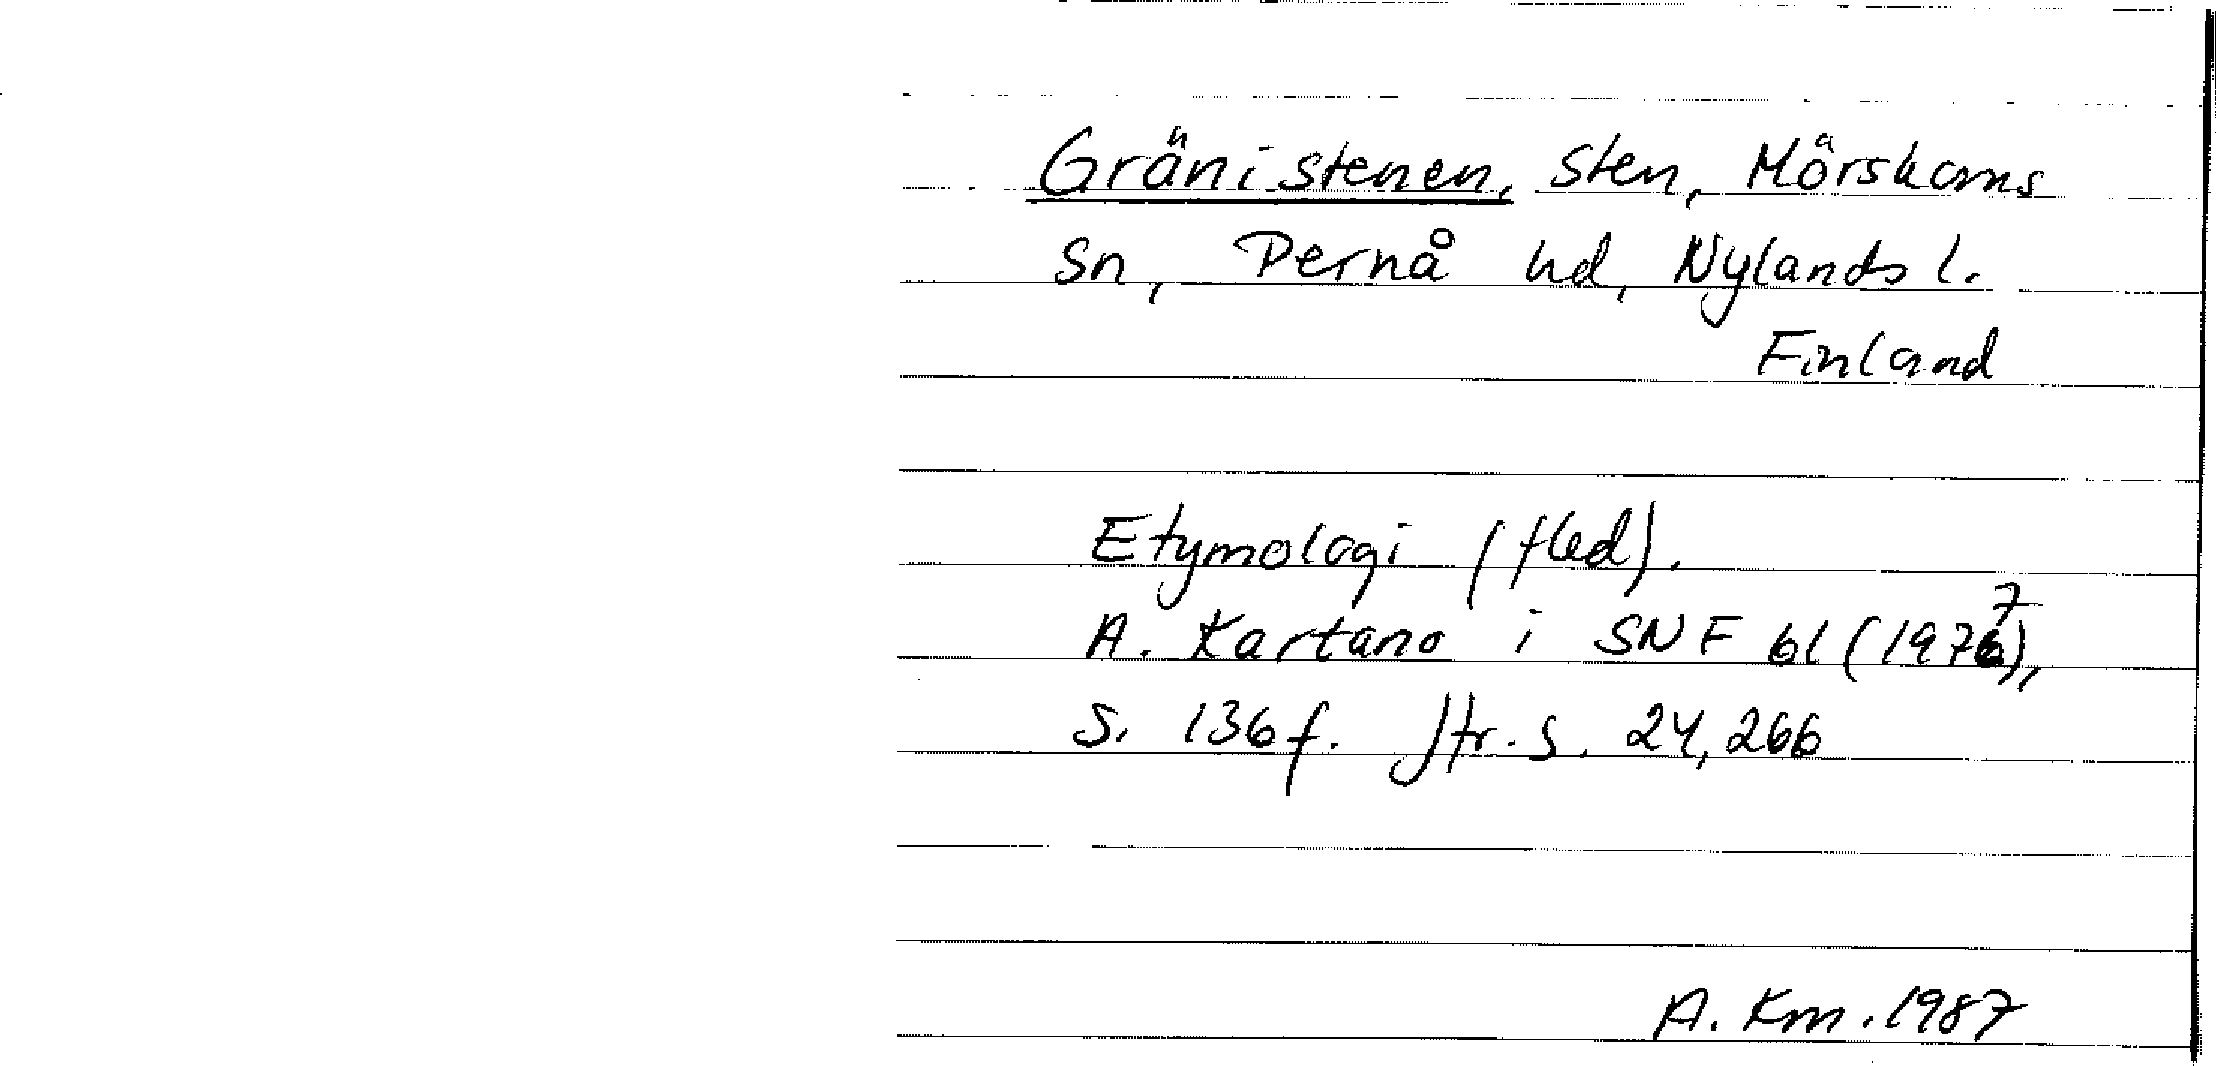 Gränistenen, sten, Mörskoms
sn, Pernå hd, Nylands l.
Finland
Etymologi (fled).
A. Kartano i SNF 61 (1977),
S. 136 f. Jfr. s. 24, 266
A. Km. 1987